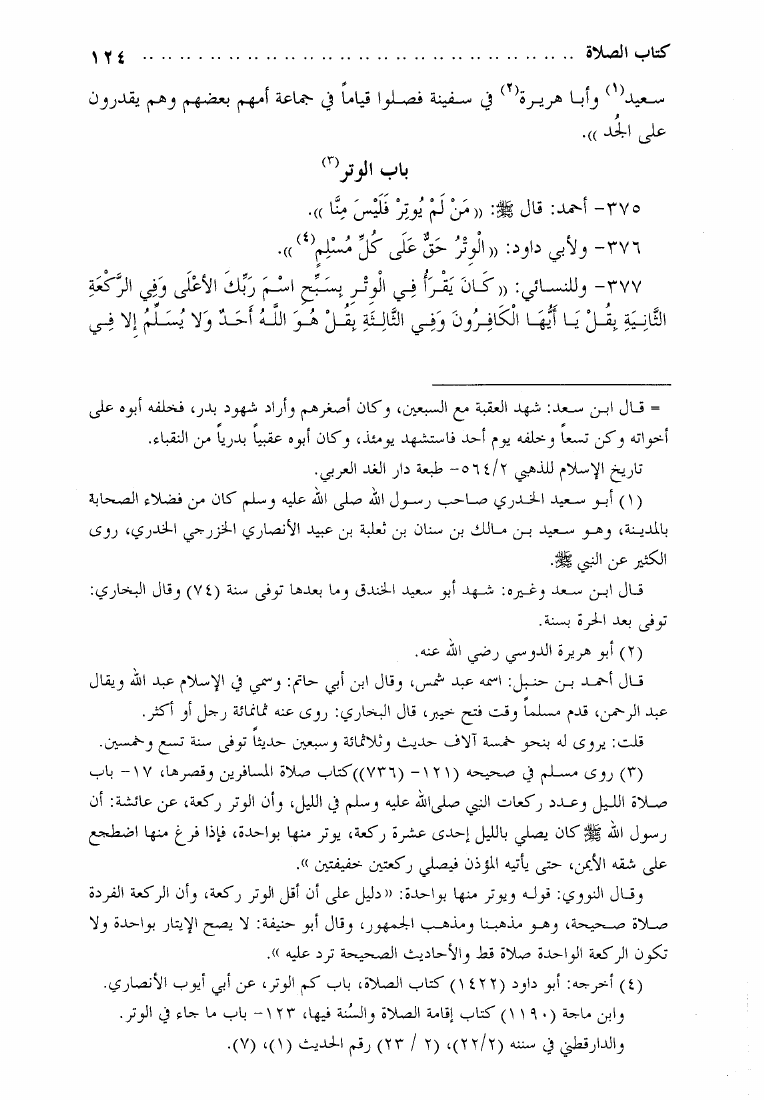 كتاب الصلاة .................................................. ١٢٤
سعيد(١) وأبا هريرة(٢) في سفينة فصلوا قياماً في جماعة أمهم بعضهم وهم يقدرون
على الجُد )).
باب الوتر(٣)
٣٧٥- أحمد: قال ﷺ: (( مَنْ لَمْ يُوتِرْ فَلَيْسَ مِنَّا )).
٣٧٦- ولأبي داود: (( الْوِتْرُ حَقٌّ عَلَى كُلِّ مُسْلِمٍ(٤) )).
٣٧٧- وللنسائي: (( كَانَ يَقْرَأُ فِي الْوِتْرِ بِسَبِّحِ اسْمَ رَبِّكَ الأعْلَى وَفِي الرَّكْعَةِ
الثَّانِيَةِ بِقُلْ يَا أَيُّهَا الْكَافِرُونَ وَفِي الثَّالِثَةِ بِقُلْ هُوَ اللَّهُ أَحَدٌ وَلا يُسَلِّمُ إِلا فِي
= قال ابن سعد: شهد العقبة مع السبعين، وكان أصغرهم وأراد شهود بدر، فخلفه أبوه على
أخواته وكن تسعاً وخلفه يوم أحد فاستشهد يومئذ، وكان أبوه عقبياً بدرياً من النقباء.
تاريخ الإسلام للذهبي ٥٦٤/٢- طبعة دار الغد العربي.
(١) أبو سعيد الخدري صاحب رسول الله صلى الله عليه وسلم كان من فضلاء الصحابة
بالمدينة، وهو سعيد بن مالك بن سنان بن ثعلبة بن عبيد الأنصاري الخزرجي الخدري، روى
الكثير عن النبي ﷺ.
قال ابن سعد وغيره: شهد أبو سعيد الخندق وما بعدها توفى سنة (٧٤) وقال البخاري:
توفى بعد الحرة بسنة.
(٢) أبو هريرة الدوسي رضي الله عنه.
قال أحمد بن حنبل: اسمه عبد شمس، وقال ابن أبي حاتم: وسمي في الإسلام عبد الله ويقال
عبد الرحمن، قدم مسلماً وقت فتح خيبر، قال البخاري: روى عنه ثمانمائة رجل أو أكثر.
قلت: يروى له بنحو خمسة آلاف حديث وثلاثمائة وسبعين حديثاً توفى سنة تسع وخمسين.
(٣) روى مسلم في صحيحه (١٢١- (٧٣٦))كتاب صلاة المسافرين وقصرها، ١٧- باب
صلاة الليل وعدد ركعات النبي صلى الله عليه وسلم في الليل، وأن الوتر ركعة، عن عائشة: أن
رسول الله ﷺ كان يصلي بالليل إحدى عشرة ركعة، يوتر منها بواحدة، فإذا فرغ منها اضطجع
على شقه الأيمن، حتى يأتيه المؤذن فيصلي ركعتين خفيفتين )).
وقال النووي: قوله ويوتر منها بواحدة: ((دليل على أن أقل الوتر ركعة، وأن الركعة الفردة
صلاة صحيحة، وهو مذهبنا ومذهب الجمهور، وقال أبو حنيفة: لا يصح الإيتار بواحدة ولا
تكون الركعة الواحدة صلاة قط والأحاديث الصحيحة ترد عليه )).
(٤) أخرجه: أبو داود (١٤٢٢) كتاب الصلاة، باب كم الوتر، عن أبي أيوب الأنصاري.
وابن ماجة (١١٩٠) كتاب إقامة الصلاة والسُنة فيها، ١٢٣- باب ما جاء في الوتر.
والدارقطني في سننه (٢٢/٢)، (٢ / ٢٣) رقم الحديث (١)، (٧).